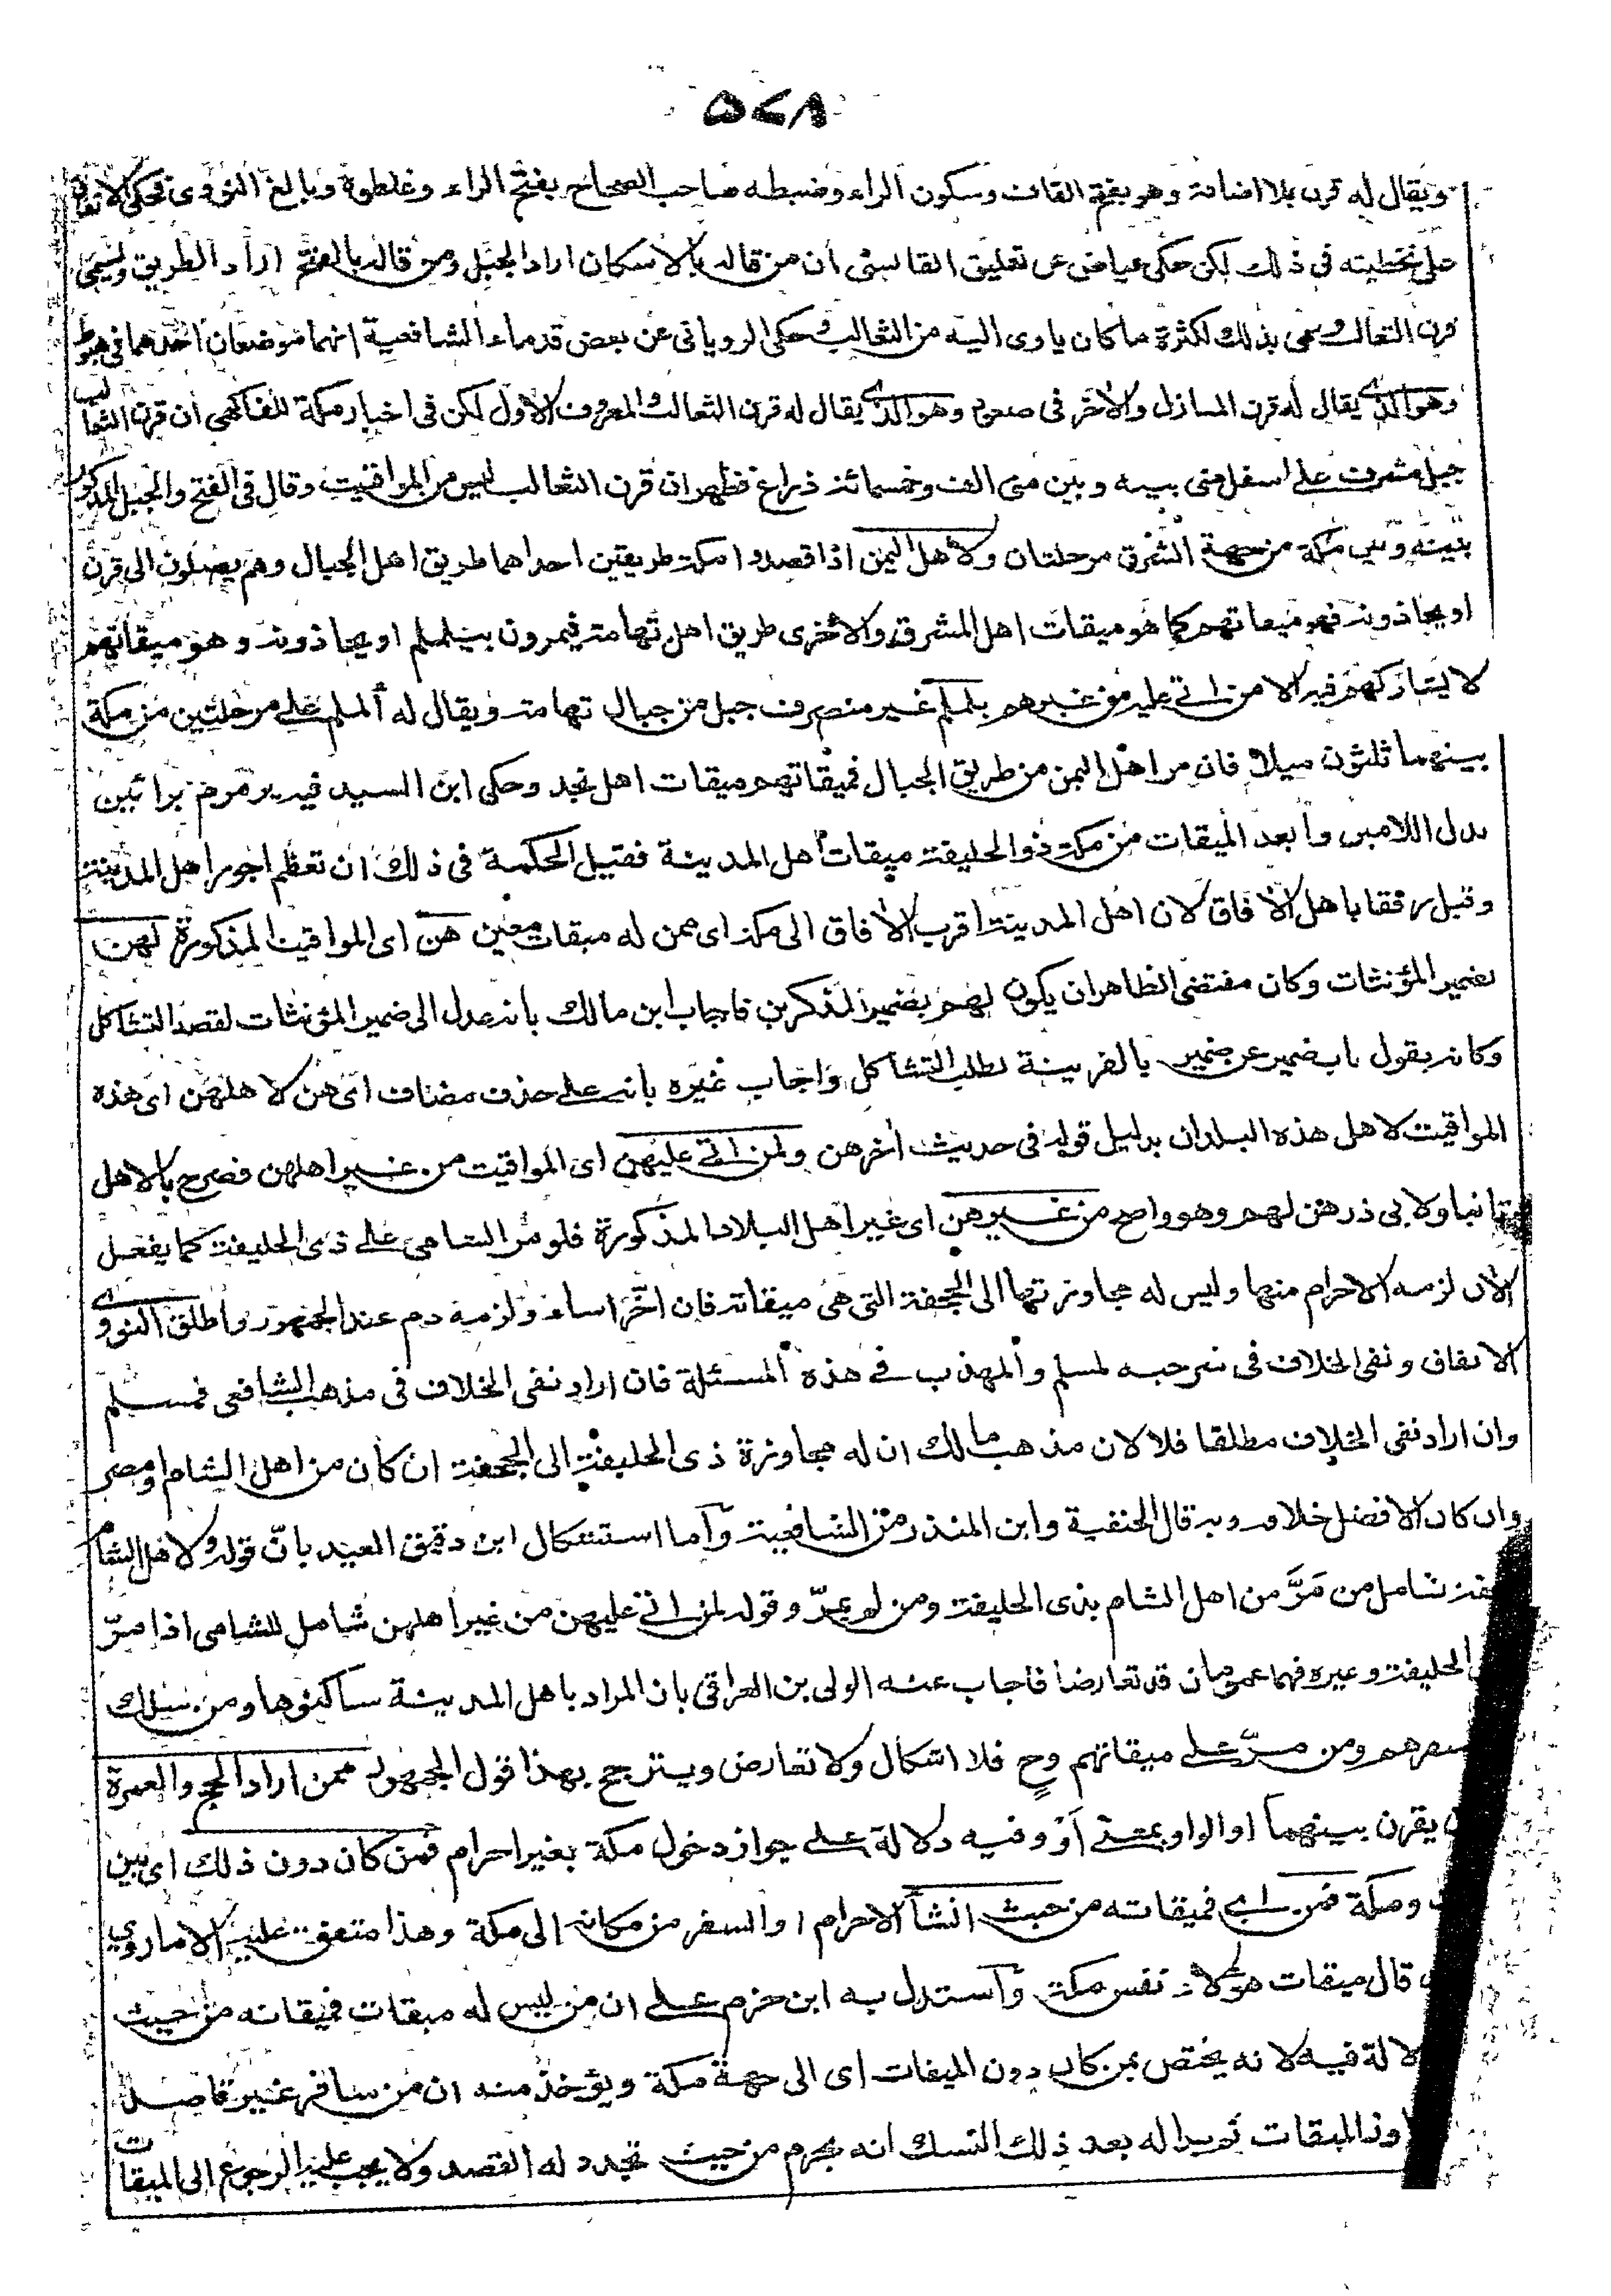 ۵۲۸
ويقال له قرن بلا اضافة وهو بفتح القاف وسكون الراء وضبطه صاحب الصحاح بفتح الراء وغلطوه وبالغ النووى فحكى الاتفاق
على تخطيته فى ذلك لكن حكى عياض عن تعليق القابسى أن من قاله بالاسكان اراد الجبل ومن قاله بالفتح اراد الطريق ويسمى
قرن الثعالب وسمى بذلك لكثرة ما كان ياوى اليه من الثعالب وحكى الرويانى عن بعض قدماء الشافعية انهما موضعان احدهما فى هبوط
وهو الذى يقال له قرن المنازل والاخر فى صعود وهو الذى يقال له قرن الثعالب والمعروف الاول لكن فى اخبار مكة للفاكهى أن قرن الثعالب
جبل مشرف على اسفل منى بينه وبين منى الف وخمسمائة ذراع فظهر ان قرن الثعالب ليس من المواقيت وقال فى الفتح والجبل المذكور
بينه وبين مكة من جهة الشرق مرحلتان ولاهل اليمن اذا قصدوا مكة طريقين احداهما طريق اهل الجبال وهم يصلون الى قرن
او يحاذونه فهو ميقاتهم كما هو ميقات اهل المشرق والاخرى طريق اهل تهامة فيمرون بيلملم او يحاذونه وهو ميقاتهم
لا يشاركهم فيه الا من اتى عليه من غيرهم يلملم غير منصرف جبل من جبال تهامة ويقال له ألملم على مرحلتين من مكة
بينهما ثلثون ميلا فان مر اهل اليمن من طريق الجبال فميقاتهم ميقات اهل نجد وحكى ابن السيد فيه يرمرم برائين
بدل اللامين وأبعد الميقات من مكة ذو الحليفة ميقات أهل المدينة فقيل الحكمة فى ذلك ان تعظم اجور اهل المدينة
وقيل رفقا باهل الآفاق لان اهل المدينة اقرب الآفاق الى مكة اى ممن له ميقات معين هن اى المواقيت المذكورة لهن
بضمير المؤنثات وكان مقتضى الظاهر ان يكون لهم بضمير المذكرين فاجاب ابن مالك بانه عدل الى ضمير المؤنثات لقصد التشاكل
وكانه يقول ناب ضمير عن ضمير بالقرينة لطلب التشاكل واجاب غيره بانه على حذف مضاف اى هن لاهلهن اى هذه
المواقيت لاهل هذه البلدان بدليل قوله فى حديث أخر هن ولمن اتى عليهن اى المواقيت من غير اهلهن فصرح بالاهل
ثانيا ولابى ذر هن لهم وهو واضح من غيرهن اى غير اهل البلاد المذكورة فلو مر الشامى على ذى الحليفة كما يفعل
الآن لزمه الاحرام منها وليس له مجاوزتها الى الجحفة التى هى ميقاته فان أخّر اساء ولزمه دم عند الجمهور واطلق النووى
الاتفاق ونفى الخلاف فى شرحيه لمسلم والمهذب فى هذه المسئلة فان اراد نفى الخلاف فى مذهب الشافعى فمسلم
وان اراد نفى الخلاف مطلقا فلا لان مذهب مالك ان له مجاوزة ذى الحليفة الى الجحفة ان كان من اهل الشام او مصر
وان كان الافضل خلافه وبه قال الحنفية وابن المنذر من الشافعية وأما استشكال ابن دقيق العيد بانّ قوله ولاهل الشام
شامل من مَرَّ من اهل الشام بذى الحليفة ومن لم يمرّ وقوله لمن اتى عليهن من غير اهلهن شامل للشامى اذا مرّ
الحليفة وغيره فهما عمومان قد تعارضا فاجاب عنه الولى بن العراقى بان المراد باهل المدينة ساكنوها ومن سلك
سفرهم ومن مرّ على ميقاتهم وحٍ فلا اشكال ولا تعارض ويترجح بهذا قول الجمهور ممن اراد الحج والعمرة
يقرن بينهما او الواو بمعنى أوْ وفيه دلالة على جواز دخول مكة بغير احرام فمن كان دون ذلك اى بين
ومكة فمن اى فميقاته من حيث انشأ الاحرام او السفر من مكانه الى مكة وهذا متفق عليه الا ما روي
قال ميقات هولاء نفس مكة وأستدل به ابن حزم على ان من ليس له ميقات فميقاته من حيث
لالة فيه لانه يختص بمن كان دون الميقات اى الى جهة مكة ويؤخذ منه ان من سافر غير قاصد
الميقات ثم بدا له بعد ذلك النسك انه يحرم من حيث تجدد له القصد ولا يجب عليه الرجوع الى الميقات